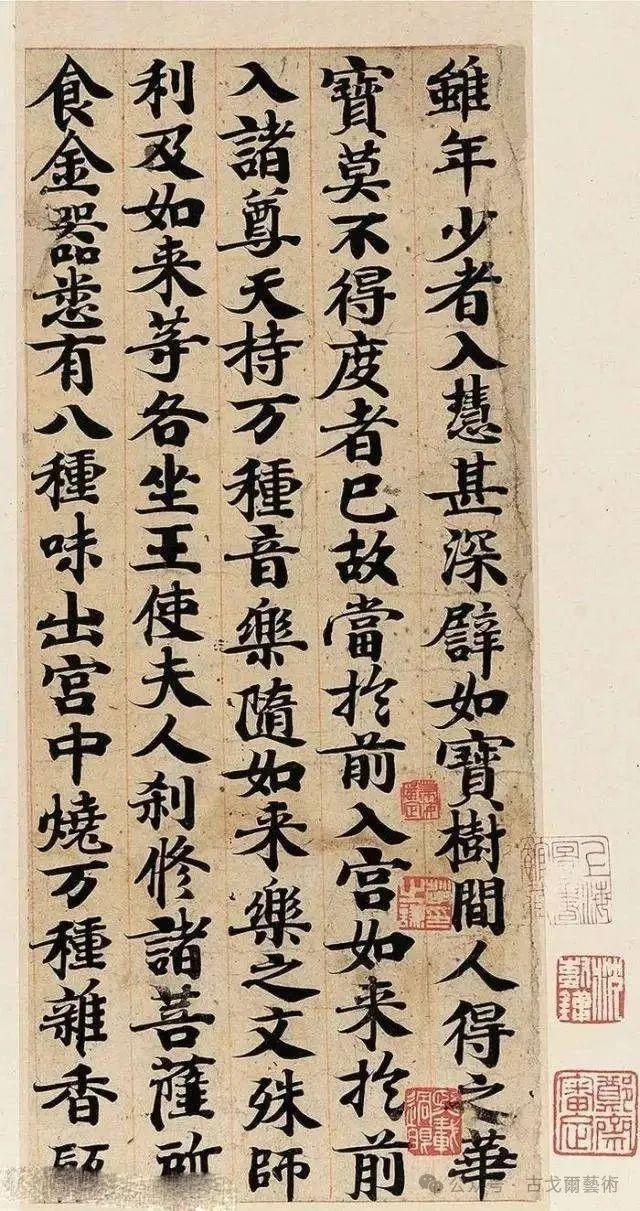 雖年少者入慧甚深譬如寶樹間人得之華
寶莫不得度者已故當扵前入宮如来扵前
入諸尊天持万種音樂隨如来樂之文殊師
利及如来等各坐王使夫人剎修諸菩薩所
食金器悉有八種味出宮中燒万種雜香
公众号 · 古戈爾藝術